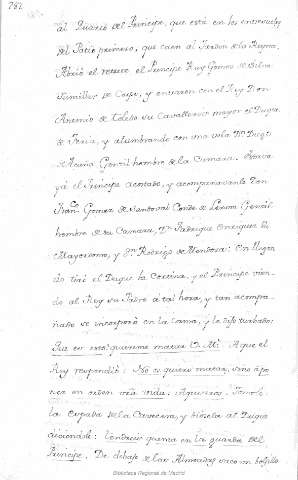 782
al Quarto del Principe, que está en los entresuelos
del Patio primero, que caen al Jardin de la Reyna,
Abrió el retrete el Principe Ruy Gomez de Silva
Sumiller de Corps, y entraron con el Rey Don
Antonio de toledo su Cavallerizo mayor el Duque
de Feria, y alumbrando con una vela Dn Diego
de Acuña Gentil hombre de la Camara. Estava
yá el Principe acostado, y acompañavanle Don
Franco Gomez de Sandoval Conde de Lerma Gentil
hombre de su Camara, Dn Fadrique Enriquez su
Mayordomo, y Dn Rodrigo de Mendoza: En llegan
do tiró el Duque la Cortina, y el Principe vien
do al Rey su Padre a tal hora, y tan acompa
ñado se incorporó en la cama, y le dijo turbado:
matar
Rey respondió: No os quiero matar, sino á po
ner en orden vida:
la Espada de la Cavecera, y diosela al Duque
quenta en la guarda del
Principe. De debajo de las Almoadas sacó un bolsillo
Biblioteca Regional de Madrid